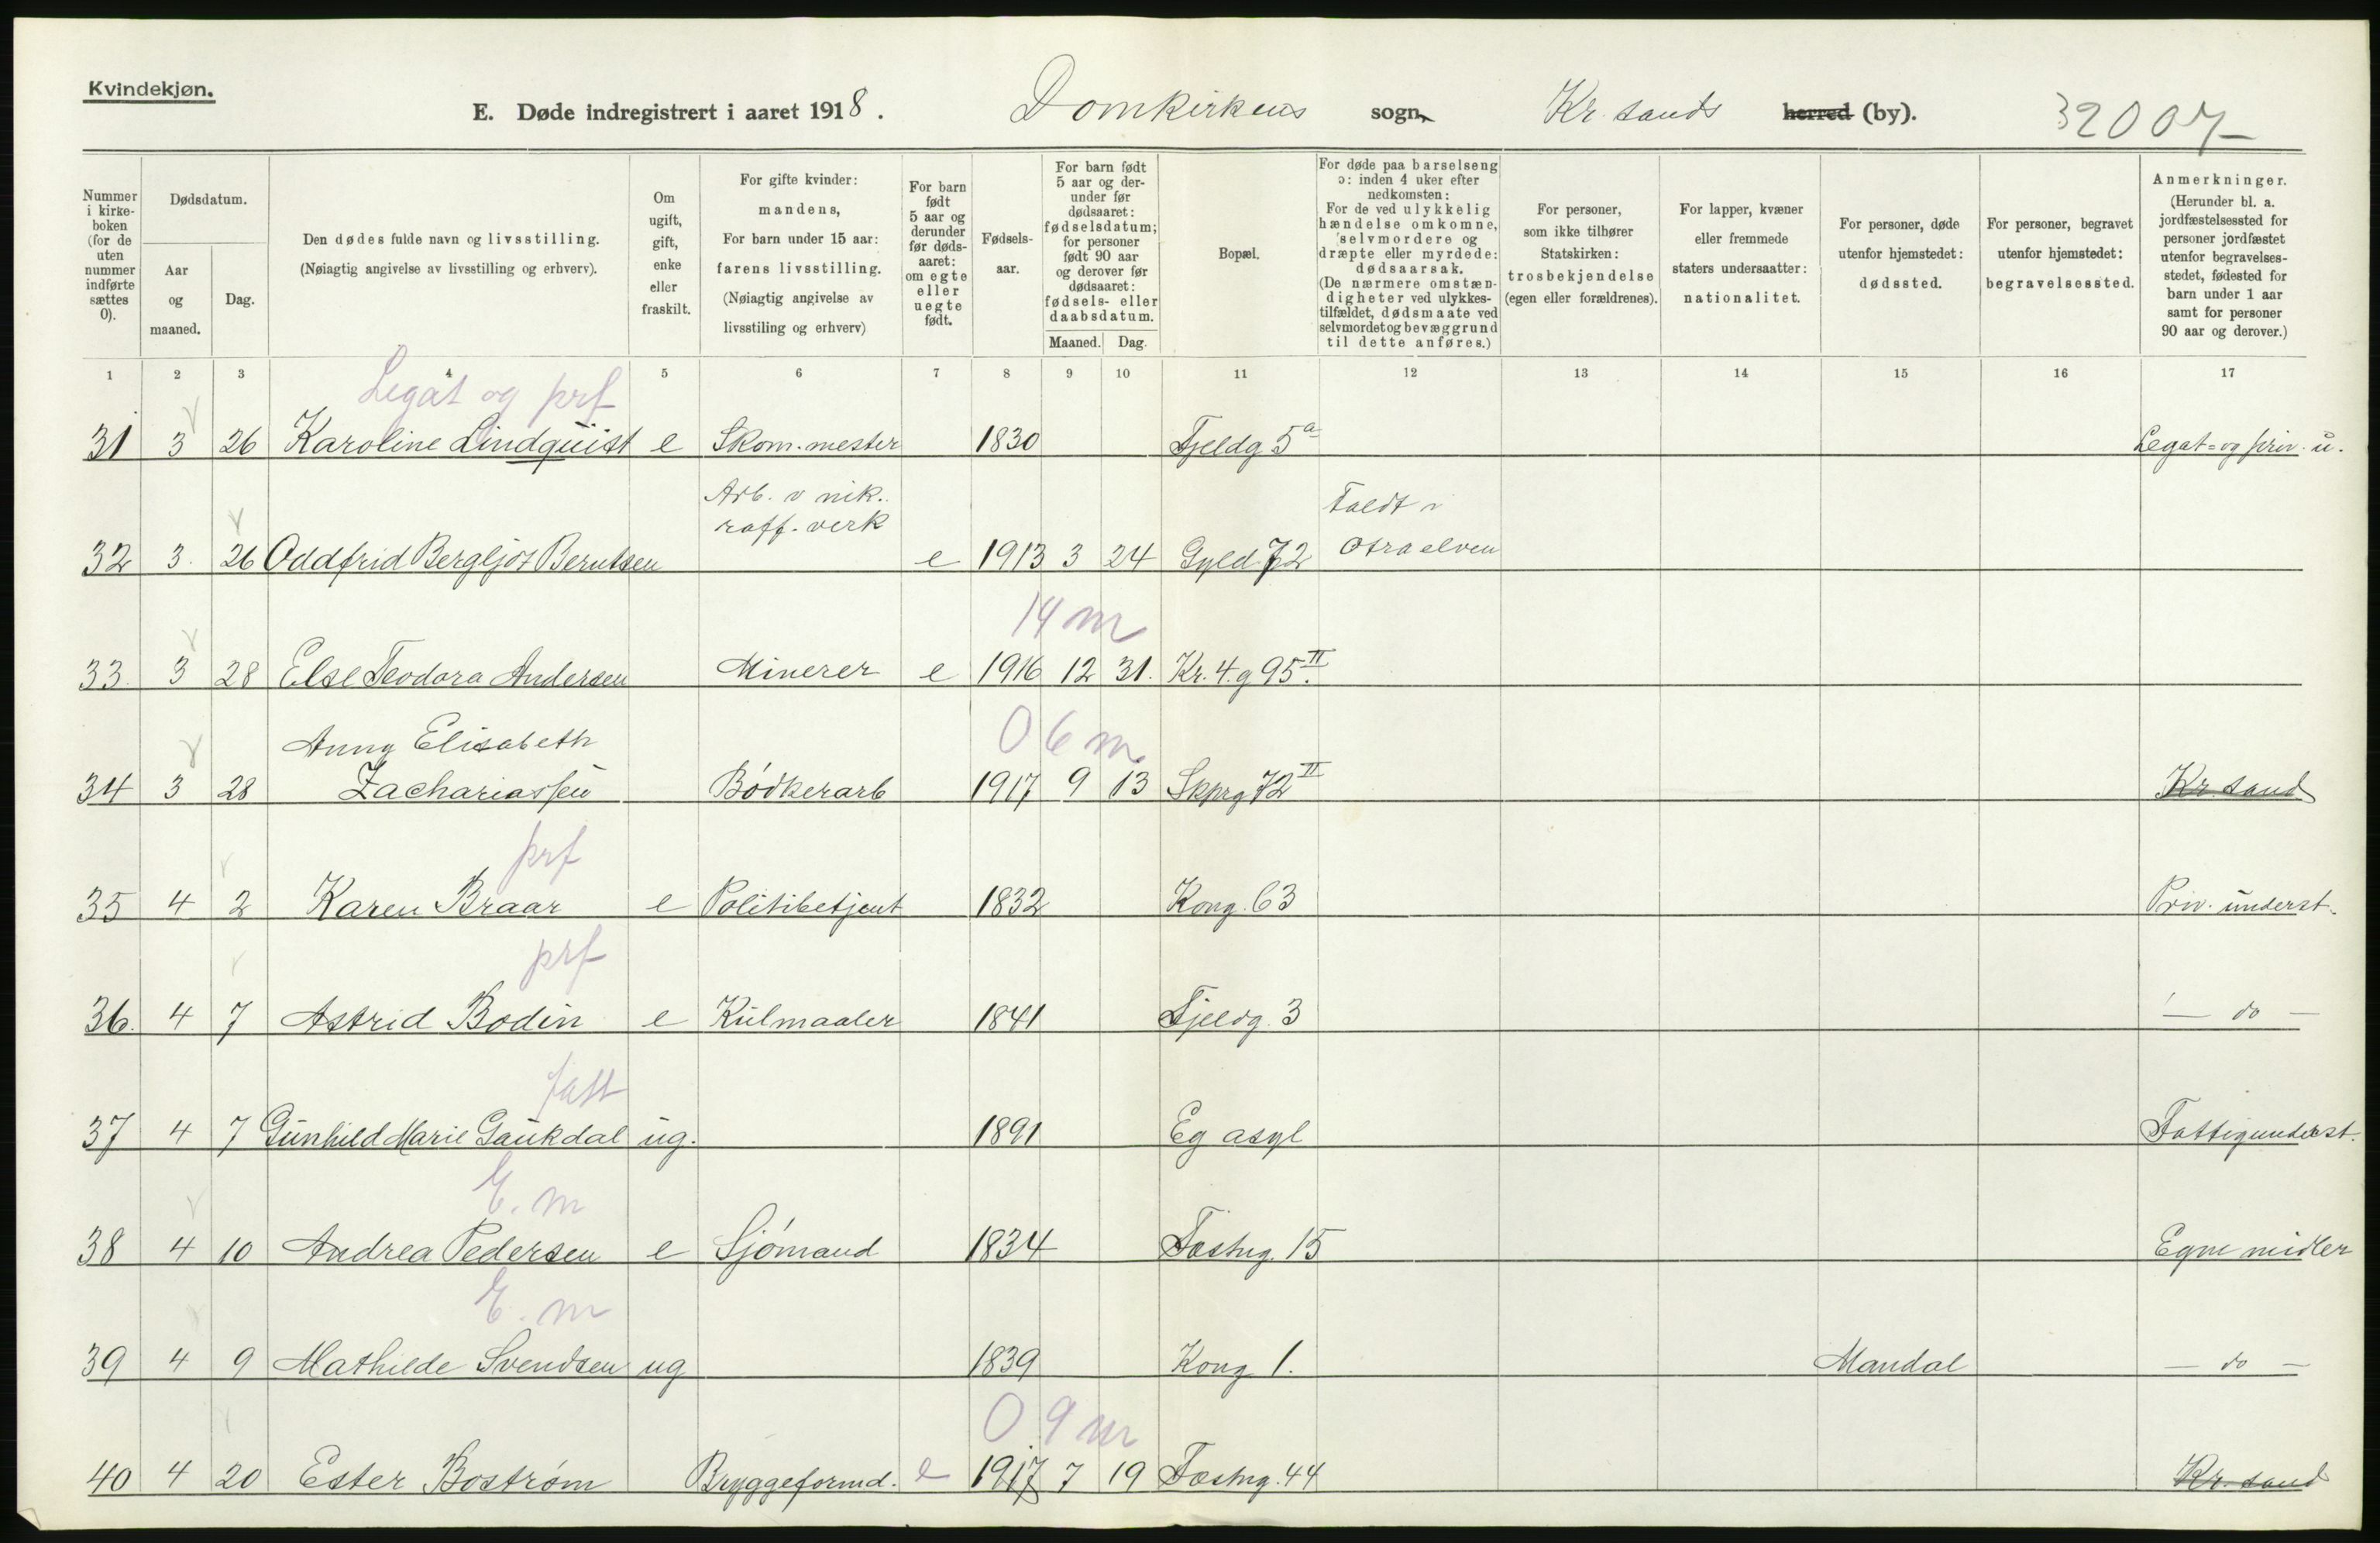 Kvindekjøn.
E. Døde indregistrert i aaret 1918. Domkirkens sogn, Kr. sands herred (by). 32007
Nummer i kirkeboken (for de uten nummer indførte sættes 0).
Dødsdatum.
Aar og maaned.
Dag.
Den dødes fulde navn og livsstilling.
(Nøiagtig angivelse av livsstilling og erhverv).
Om ugift, gift, enke eller fraskilt.
For gifte kvinder: mandens,
For barn under 15 aar: farens livsstilling.
(Nøiagtig angivelse av livsstiling og erhverv)
For barn født 5 aar og derunder før dødsaaret: om egte eller uegte født.
Fødselsaar.
For barn født 5 aar og derunder før dødsaaret: fødselsdatum; for personer født 90 aar og derover før dødsaaret: fødsels- eller daabsdatum.
Maaned. Dag.
Bopæl.
For døde paa barselseng ɔ: inden 4 uker efter nedkomsten:
For de ved ulykkelig hændelse omkomne, selvmordere og dræpte eller myrdede: dødsaarsak.
(De nærmere omstændigheter ved ulykkestilfældet, dødsmaate ved selvmordet og bevæggrund til dette anføres.)
For personer, som ikke tilhører Statskirken: trosbekjendelse (egen eller forældrenes).
For lapper, kvæner eller fremmede staters undersaatter: nationalitet.
For personer, døde utenfor hjemstedet: dødssted.
For personer, begravet utenfor hjemstedet: begravelsessted.
Anmerkninger.
(Herunder bl. a. jordfæstelsessted for personer jordfæstet utenfor begravelsesstedet, fødested for barn under 1 aar samt for personer 90 aar og derover.)
1 2 3 4 5 6 7 8 9 10 11 12 13 14 15 16 17
Legat og prf
31 3 26 Karoline Lindquist e Skom.mester 1830 Fjeldg 5a Legat= og priv. u.
Arb. v nik. raff. verk
Faldt i
32 3. 26 Oddfrid Bergljot Berntsen e 1913 3 24 Gyld. 72 Otraelven
14 m
33. 3 28 Else Teodora Andersen Minerer e 1916 12 31. Kr. 4. g 95 II.
06 m
Anny Elisabeth
34 3 28 Zachariassen Bödkerarb 1917 9 13 Skprg 72 II Kr. sand
prf
35 4 2 Karen Braar e Politibetjent 1832 Kong. 63 Priv. underst.
prf
36. 4 7 Astrid Bodin e Kulmaaler 1841 Fjeldg. 3 — do —
fatt
37 4 7 Gunhild Marie Gaukdal ug. 1891 Eg asyl Fattigunderst.
E. m
38 4 10 Andrea Pedersen e Sjömand 1834 Fæstng. 15 Egne midler
E. m
39 4 9 Mathilde Svendsen ug 1839 Kong 1. Mandal — do —
09 m
40 4 20 Ester Bostrøm Bryggeformd. e 1917 7 19 Fæstng. 44 Kr. sand